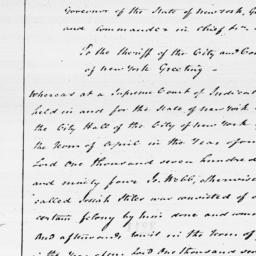 Governor of the State of New York, G
and commander in Chief
To the Sheriff of the City and Coun
of New York Greeting —
Whereas at a Supreme Court of Judicat
held in and for the State of New York
the City Hall of the City of New York
the Term of April in the Year of our
Lord One thousand seven hundred
and ninety four G. Webb, Otherwise
called Josiah Stiles was convicted of a
certain felony by him done and
And afterwards to wit in the Term of
in the Year